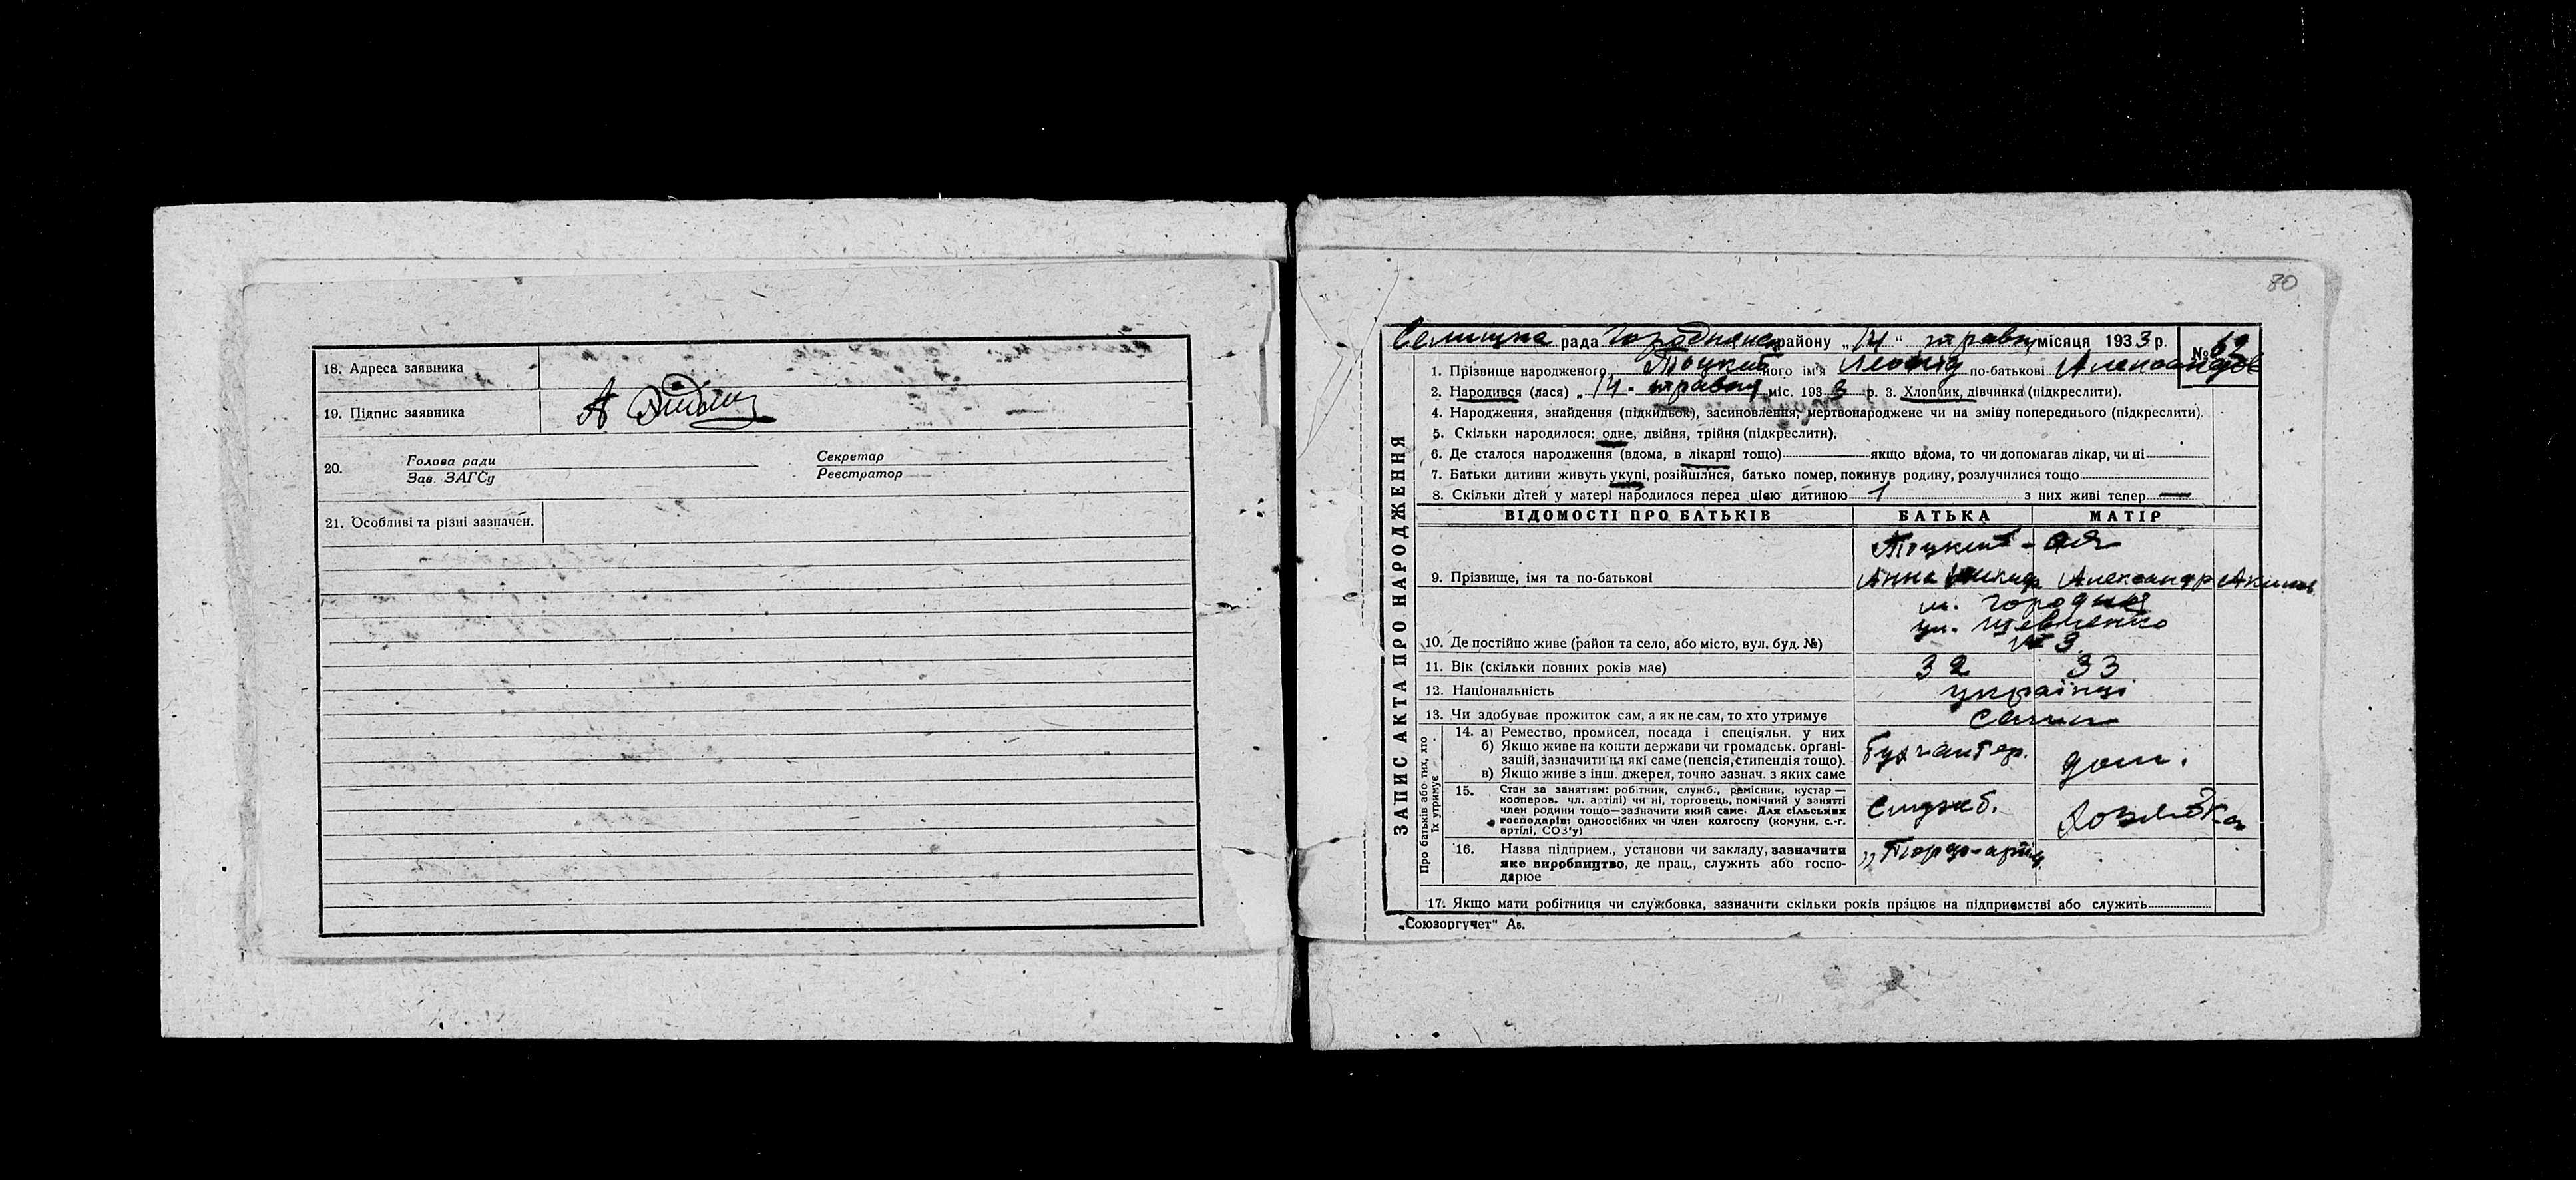 18. Адреса заявника
19. Підпис заявника А
20. Голова ради Секретар
Зав. ЗАГСу Реєстратор
21. Особливі та різні зазначен.
80
ЗАПИС АКТА ПРО НАРОДЖЕННЯ
Селищна рада Городнянськ району „14“ травня місяця 1933 р. № 62
1. Прізвище народженого Тоцкий його ім'я Леонід по-батькові Александров
2. Народився (лася) „14. травня міс. 1933 р. 3. Хлопчик, дівчинка (підкреслити).
4. Народження, знайдення (підкидьок), засиновлення, мертвонароджене чи на зміну попереднього (підкреслити).
5. Скільки народилося: одне, двійня, трійня (підкреслити).
6. Де сталося народження (вдома, в лікарні тощо) якщо вдома, то чи допомагав лікар, чи ні
7. Батьки дитини живуть укупі, розійшлися, батько помер, покинув родину, розлучилися тощо
8. Скільки дітей у матері народилося перед цією дитиною 1 з них живі тепер —
ВІДОМОСТІ ПРО БАТЬКІВ БАТЬКА МАТІР
Тоцкий - ая
9. Прізвище, імя та по-батькові Анна Александр Акимов
м. Городня
ул. Шевченко
10. Де постійно живе (район та село, або місто, вул. буд. №) № 3.
11. Вік (скільки повних років має) 32 33
12. Національність українці
13. Чи здобуває прожиток сам, а як не сам, то хто утримує сами
Про батьків або тих, хто їх утримує
14. а) Ремество, промисел, посада і спеціяльн. у них
б) Якщо живе на кошти держави чи громадськ. органі-
зацій, зазначити на які саме (пенсія, стипендія тощо).
в) Якщо живе з інш. джерел, точно зазнач. з яких саме
бухгалтер. дом.
15. Стан за заняттям: робітник, служб., ремісник, кустар—
кооперов. чл. артілі) чи ні, торговець, помічний у занятті
член родини тощо—зазначити який саме. Для сільських
господарів: одноосібних чи член колгоспу (комуни, с.-г.
артілі, СОЗ'у)
служб. хозяйка
16. Назва підприєм., установи чи закладу, зазначити
яке виробництво, де прац., служить або госпо-
дарює
17. Якщо мати робітниця чи службовка, зазначити скільки років працює на підприємстві або служить
„Союзоргучет“ Аб.